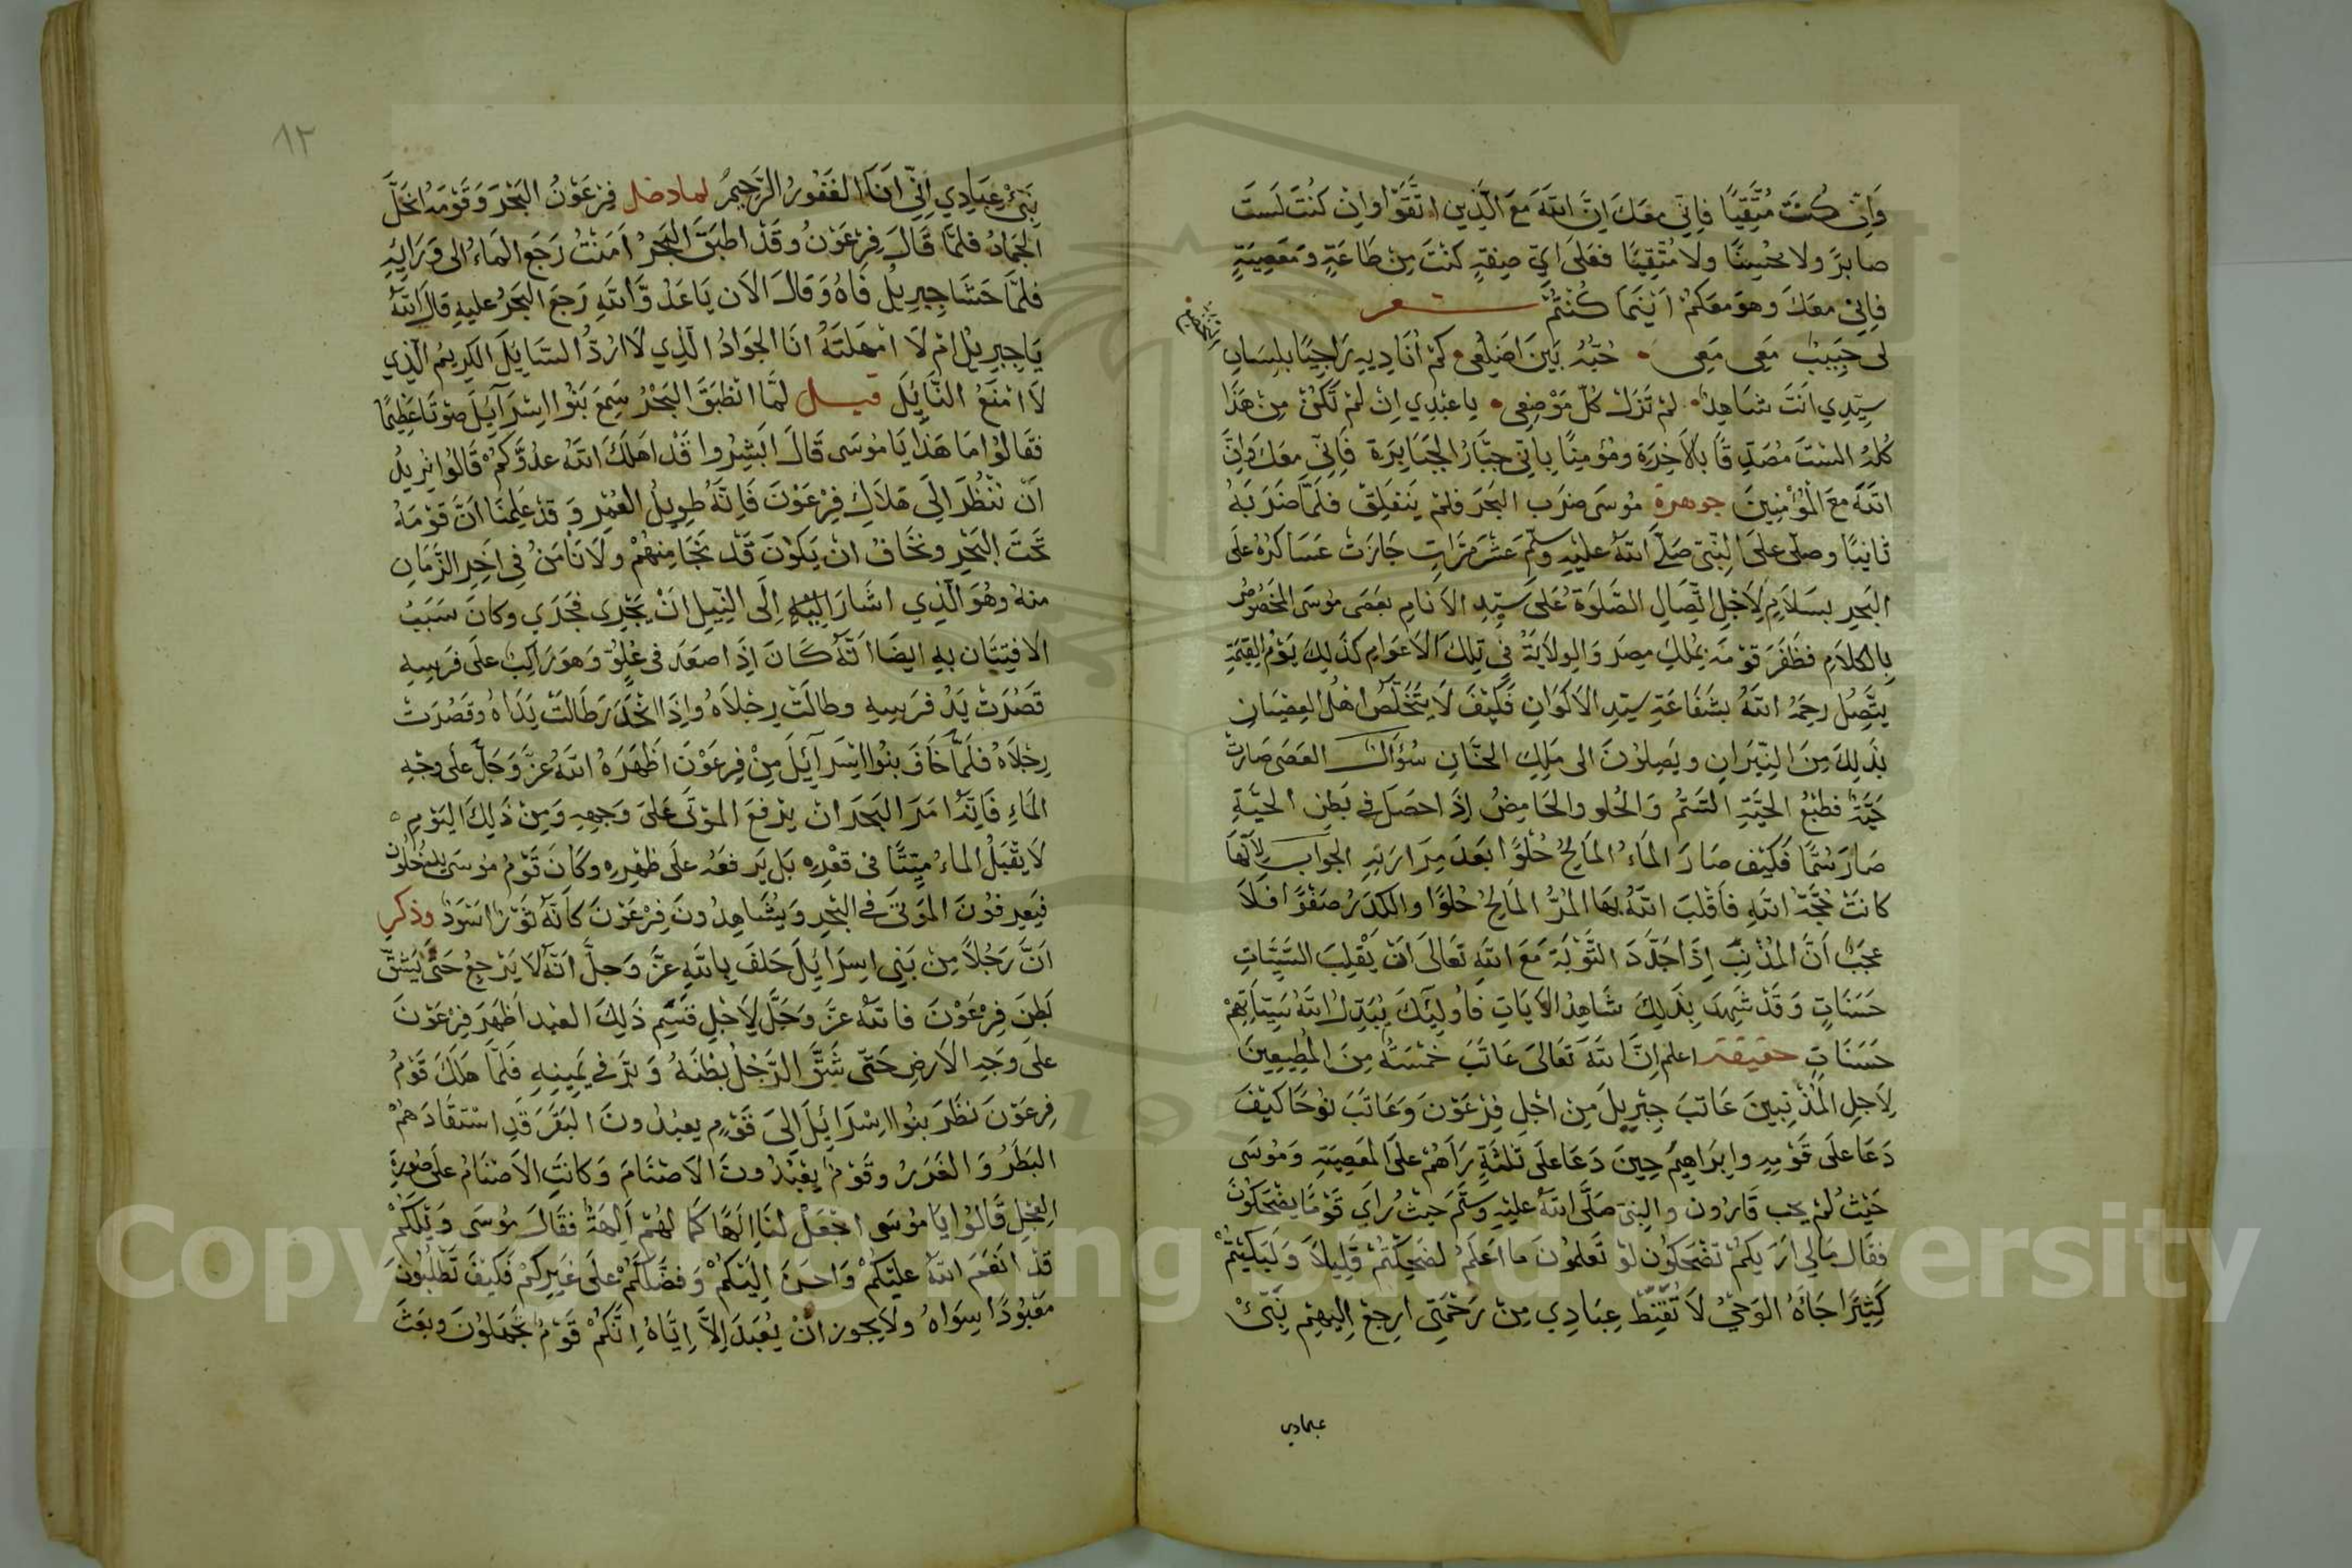 وَاِنْ كُنْتَ مُتَّقِيًا فَاِنِّي معَكَ اِنَّ اللهَ مَعَ الَّذِينَ اتَّقَوْا وَاِنْ كُنْتَ لَسْتَ
صابرًا ولا مُحْسِنًا ولَا مُتَّقِيًا فعَلَى اَيِّ صِفَةٍ كُنْتَ مِنْ طَاعَةٍ وَمَعْصِيَةٍ
فَاِنِّي معَكَ وهوَ معَكُمْ اَيْنَمَا كُنْتُمْ شعر
لى حَبِيبٌ مَعِى مَعِى حُبُّهُ بَيْنَ اَضْلُعِى كَمْ اُنَادِيهِ رَاجِيًا بلِسَانِ
سيِّدِي اَنتَ شَاهِدٌ لَمْ تَزَلْ كُلَّ مَوْضِعِى يا عَبْدِي اِنْ لَمْ تَكُنْ مِنْ هَذَا
كُلِّهِ اَلسْتَ مُصَدِّقًا بِالْآخِرَةِ ومُؤْمِنًا بِاَنِّي جَبَّارُ الْجَبَابِرَة فَاِنِّي معَكَ وَاِنَّ
اللهَ مَعَ الْمُؤْمِنِينَ جوهرة مُوسَى ضرَبَ البَحْرَ فلَمْ يَنْفَلِقْ فلَمَّا ضَرَبَهُ
ثَانِيًا وصلّى علَى النَّبِيِّ صَلَّى اللهُ علَيْهِ وسَلَّمَ عَشْرَ مَرَّاتٍ جَازَتْ عَسَاكِرُهُ عَلَى
البَحْرِ بسَلَامٍ لِاَجْلِ اتِّصَالِ الصَّلَوةِ عَلَى سَيِّدِ الْاَنَامِ بعَصَى مُوسَى المَخْصُوصُ
بِالكلَامِ فظَفَرَ قوْمَهُ بِمُلْكِ مِصْرَ وَالوِلَايَةِ فِي تِلْكَ الْاَعْوَامِ كَذَلِكَ يَوْمُ القِيمَةِ
يتَّصِلُ رحمَةُ اللهُ بشَفَاعَةِ سيّدِ الْاَكْوَانِ فَكَيْفَ لَا يَتَخَلَّصُ اَهْلُ العِصْيَانِ
بِذَلِكَ مِنَ النِّيرَانِ ويَصِلُونَ الى مَلِكِ الجنَانِ سُؤَال العَصَى صَارَتْ
حَيَّةً فطَبْعُ الحَيَّةِ السَّمُّ وَالحُلو والحَامِضُ اِذَا حصَلَ في بَطْنِ الحيَّةِ
صَارَ سُمًّا فَكَيْفَ صَارَ المَاءُ المَالِحُ حُلْوًا بَعْدَ مِرَارَتِهِ الجواب لِاَنَّهَا
كانَتْ حُجَّةَ اللهِ فَاَقْلَبَ اللهُ بهَا المُرَّ المَالِحُ حُلْوًا والكَدَرُ صَفْوًا فَلَا
عجَبٌ اَنَّ المُذْنِبَ اِذَا جَدَّدَ التَّوْبَةَ مَعَ اللهِ تَعَالَى اَنْ يَقْلِبَ السَّيِّئَاتِ
حَسَنَاتٍ وَقَدْ شَهِدَ بِذَلِكَ شَاهِدُ الاٰيَاتِ فَاُولٰئِكَ يُبَدِّلُ اللهُ سَيِّئَاتِهِمْ
حَسَنَاتٍ حقيقة اعلم اِنَّ اللهَ تَعَالَى عَاتَبَ خَمْسَةً مِنَ المُطِيعِينَ
لِاَجْلِ المُذْنِبِينَ عَاتَبَ جِبْرِيلَ مِنْ اَجْلِ فِرْعَوْنَ وَعَاتَبَ نُوحًا كَيْفَ
دَعَا علَى قَوْمِهِ وابْرَاهِيمُ حِينَ دَعَا علَى ثَلٰثَةٍ رَاٰهُمْ علَى المَعْصِيَةِ وَمُوسَى
حَيْثُ لَمْ يجب قَارُون والنبي صَلَّى اللهُ علَيْهِ وسَلَّمَ حَيْثُ رَاَي قَوْمًا يضْحَكُونَ
فقَالَ مَالِي اَرَيكُمْ تضْحَكُونَ لَوْ تَعلمُونَ ما اَعْلَمُ لَضَحِكْتُمْ قَلِيلًا وَلَبَكَيْتُمْ
كَثِيرًا جَاءَهُ الوَحْيُ لَا تُقَنِّطْ عِبَادِي مِنْ رَحْمَتِي اِرْجِعْ اِلَيْهِمْ نَبِّئْ
عبادي
٨٢
نَبِّئْ عِبَادِي اَنِّي اَنَا الغَفُورُ الرَّحِيمُ لما دخل فِرْعَوْنُ البَحْرَ وَقَوْمَهُ انْحَلَّ
الجَمَادُ فلَمَّا قَالَ فِرْعَوْنُ وقَدْ اَطْبَقَ البَحْرُ اٰمَنْتُ رَجَعَ المَاءُ الى وَرَائِهِ
فلَمَّا حَشَا جِبرِيلُ فَاهُ وَقَالَ الْاٰن يَاعَدُوَّ اللهِ رَجَعَ البَحْرُ عليهِ قالَ اللهُ
يَا جِبرِيلُ لِمَ لَا امْهَلْتَهُ اَنَا الجَوَادُ الَّذِي لَا اَرُدُّ السَّائِلَ الكَرِيمُ الَّذِي
لَا اَمْنَعُ النَّائِلَ قيل لَمَّا انْطبَقَ البَحْرُ سَمِعَ بَنُوا اِسْرَائِيلَ صَوْتًا عَظِيمًا
فقَالُوا مَا هَذَا يَا مُوسَى قَالَ اَبْشِرُوا قَدْ اَهلَكَ اللهُ عدُوَّكُمْ قَالُوا نرِيدُ
اَنْ نَنْظُرَ الَى هَلَاكِ فِرْعَوْنَ فَاِنَّهُ طويلُ العُمْرِ وَقَدْ عَلِمْنَا اَنَّ قَوْمَهُ
تَحْتَ البَحْرِ ونخَافُ اَنْ يَكُوْنَ قَدْ نَجَا مِنْهُمْ ولَا نَاْمَنُ فِى اٰخِرِ الزَّمَانِ
منهُ وهُوَ الَّذِي اشَارَ اِلَى النِّيْلِ اَنْ يَجْرِى فجَرَى وكانَ سَبَبُ
الافْتِتَان بهِ ايضًا اَنَّهُ كَانَ اِذَا صَعَدَ فى عُلُوٍّ وَهوَ رَاكِبٌ علَى فَرَسِهِ
قَصُرَتْ يَدُ فرَسِهِ وطالَتْ رِجْلَاهُ وَاِذَا انْحَدَرَ طَالَتْ يَدَاهُ وقَصُرَتْ
رِجْلَاهُ فلَمَّا خَافَ بنُوا اِسْرَائِيلَ مِنْ فِرعَوْنَ اَظْهَرَهُ اللهُ عَزَّ وَجَلَّ علَى وَجْهِ
المَاءِ فَاِنَّهُ اَمَرَ البَحْرَ اَنْ يرْفَعَ المَوْتَى عَلَى وَجهِهِ وَمِنْ ذَلِكَ اليَوْمِ
لَا يقْبَلُ المَاءُ مَيِّتًا فى قَعْرِهِ بَلْ يَرفعُهُ علَى ظَهْرِهِ وكَانَ قَوْمُ مُوسَى يدخُلُونَ
فيَعرفُونَ المَوْتَى في البَحْرِ وَيُشَاهِدُونَ فِرْعَوْنَ كَاَنَّهُ ثَوْرٌ اَسْوَدُ وذكر
اَنَّ رَجُلًا مِنْ بَنِى اِسرَائِيلَ حَلَفَ بِاللهِ عزَّ وَجلَّ اَنَّهُ لَا يَرْجِعُ حَتَّى يَشُقَّ
بَطْنَ فِرْعَوْنَ فَاللهُ عزَّ وجَلَّ لِاَجْلِ قَسَمِ ذَلِكَ العَبْدِ اَظْهَرَ فِرْعَوْنَ
علَى وَجهِ الاَرضِ حَتَّى شَقَّ الرَّجُلُ بَطْنَهُ وَبَرَّ في يَمِينِهِ فَلَمَّا هَلَكَ قَوْمُ
فِرعَوْنَ نظَرَ بنُوا اِسْرَائِيلَ اِلَى قَوْمٍ يعبُدُونَ البَقَرَ قَدِ اسْتَقَادَهُمْ
البَطَرُ وَالغَرَرُ وقَوْمٌ يعْبُدُونَ الاَصْنَامَ وَكانَتِ الاَصْنَامُ علَى صُورَةِ
العِجْلِ قَالُوا يَا مُوسَى اجْعَلْ لَنَا اِلَهًا كَمَا لَهُمْ اٰلِهَةٌ فقَالَ مُوسَى وَيْلَكُمْ
قَدْ اَنْعَمَ اللهُ علَيْكُمْ وَاحسَنَ اِلَيْكُمْ وَفضَّلَكُمْ علَى غَيرِكُمْ فَكَيْفَ تَطْلُبُونَ
مَعْبُودًا سِوَاهُ ولَا يَجُوز اَنْ يُعْبَدَ اِلَّا اِيَّاهُ اِنَّكُمْ قَوْمٌ تَجْهَلُونَ وبَعَثَ
Copyright © King Saud University